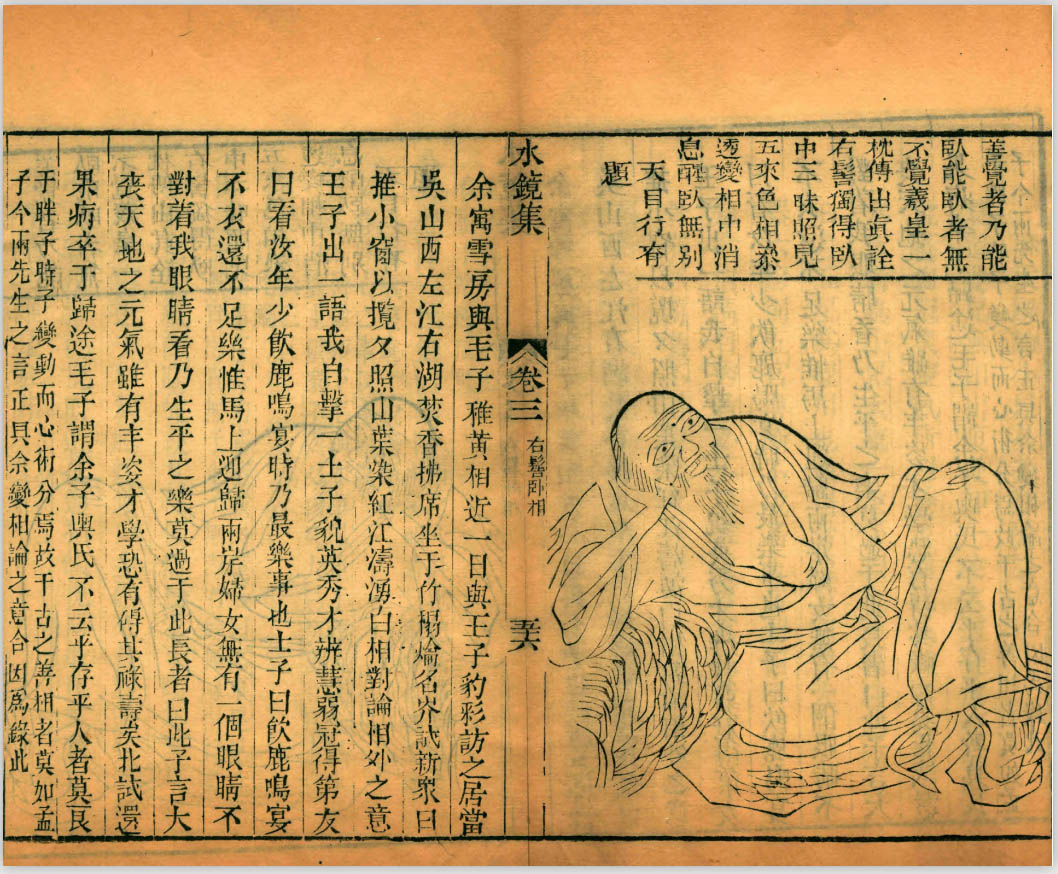 善覺者乃能
臥能臥者無
不覺羲皇一
枕傳出眞詮
右髻獨得臥
中三昧照見
五來色相叅
透變相中消
息醒臥無别
天目行有
題
水鏡集
卷三
右髻卧相
五六
余寓雪房與毛子稚黄相近一日與王子豹彩訪之居當
吳山西左江右湖焚香拂席坐于竹榻爚名岕試新泉曰
推小窗以攬夕照山葉染紅江濤湧白相對論相外之意
王子出一語我自擊一士子貌英秀才辨慧弱冠得第友
曰看汝年少飲鹿鳴宴時乃最樂事也士子曰飲鹿鳴宴
不衣還不足樂惟馬上迎歸兩岸婦女無有一個眼睛不
對着我眼睛看乃生平之樂莫過于此長者曰此子言大
喪天地之元氣雖有丰姿才學恐有碍其祿壽矣北試還
果病卒于歸途毛子謂余子輿氏不云乎存乎人者莫良
于眸子時子變動而心術分焉故千古之善相者莫如孟
子今兩先生之言正具余變相論之意合因爲錄此